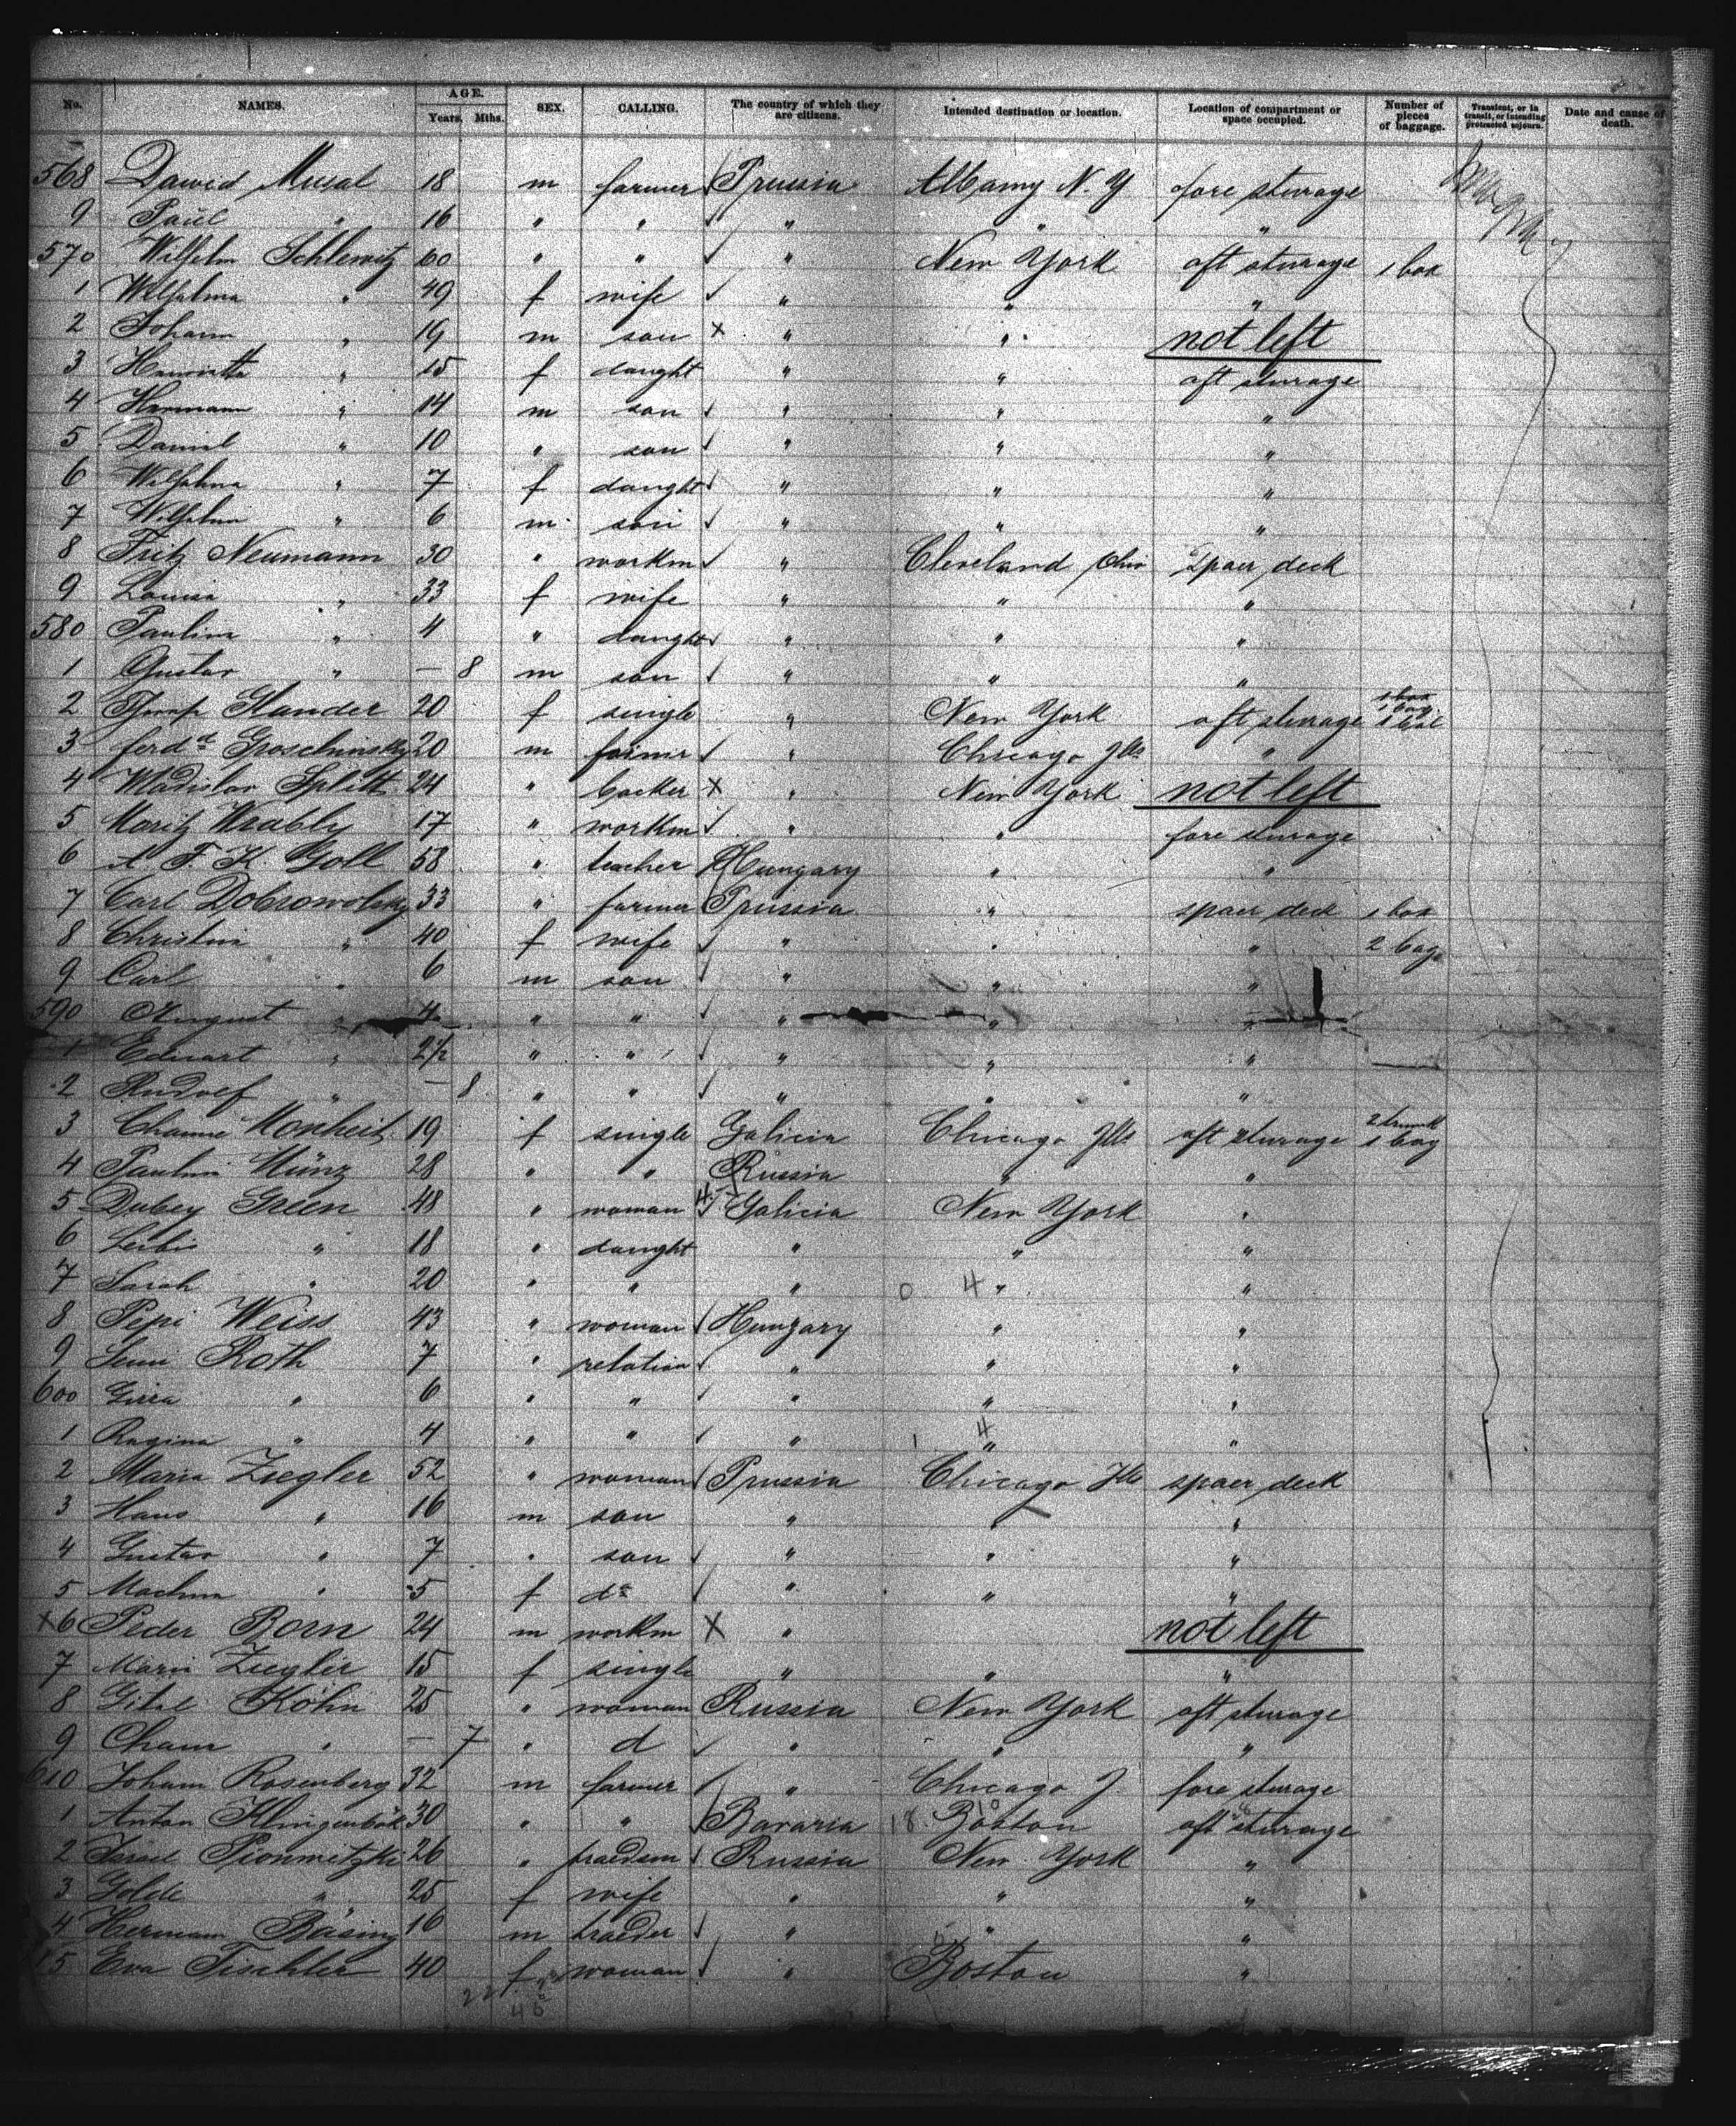 No. NAMES. AGE. Years. Mths. SEX. CALLING. The country of which they are citizens. Intended destination or location. Location of compartment or space occupied. Number of pieces of baggage. Transient, or in transit, or intending protracted sojourn. Date and cause of death.
568 Dawid Musal 18 m farmer Prussia Albany N. Y fore sturage
9 Paul " 16 " " " " "
570 Wilhelm Schlewitz 60 " " " New York aft sturage 1 box
1 Wilhelmina " 49 f wife " " "
2 Johann " 19 m son x " " not left
3 Henrietta " 15 f daught " " aft sturage
4 Hermann " 14 m son " " "
5 Daniel " 10 " son " " "
6 Wilhelmina " 7 f daught " " "
7 Wilhelm " 6 m son " " "
8 Fritz Neumann 30 " workm " Cleveland Ohio spaer deck
9 Louisa " 33 f wife " " "
580 Paulina " 4 " daught " " "
1 Gustav " — 8 m son " " "
2 Glander 20 f single " New York aft sturage 1 box 1 bag
3 ferdd Groschinsky 20 m farmer " Chicago Ills "
4 Wladislav Splitt 24 " backer x " New York not left
5 Moritz Wrably 17 " workm " " fore sturage
6 A. F. K. Goll 58 " teacher Hungary " "
7 Carl Dobrowolsky 33 " farmer Prussia " spaer deck 1 box
8 Christin " 40 f wife " " " 2 bag
9 Carl " 6 m son " " "
590 August " 4 " " " " "
1 Eduart " 2½ " " " " "
2 Rudolf " — 8 " " " " "
3 Channe Monheit 19 f single Galicia Chicago Ills aft sturage 2 trunk 1 bag
4 Paulin Münz 28 " " Russia " "
5 Dubey Green 48 " woman Galicia New York "
6 Leibi " 18 " daught " " "
7 Sarah " 20 " " " 0 4 " "
8 Pepi Weiss 43 " woman Hungary " "
9 Semi Roth 7 " relation " " "
600 " 6 " " " " "
1 Ragina " 4 " " " 1 4 " "
2 Maria Ziegler 52 " woman Prussia Chicago Ills spaer deck
3 Hans " 16 m son " " "
4 Gustav " 7 " son " " "
5 " 5 f do " " "
x6 Peder Born 24 m workm x " not left
7 Marii Ziegler 15 f single " " "
8 Gital Köhn 25 " woman Russia New York aft sturage
9 Cham " — 7 " d " " "
610 Joham Rosenberg 32 m farmer " Chicago J. fore sturage
1 Anton Klingenbök 30 " " Bavaria 18 Boston 10 aft sturage
2 Israel Pionmitzki 26 " praedsm Russia New York "
3 Golde " 25 f wife " " "
4 Hermann Bäsing 16 m traeder " " "
15 Eva Tischler 40 f woman " Boston "
22 46